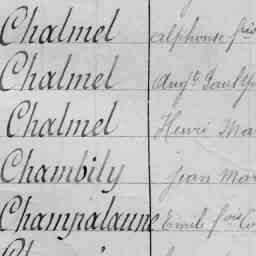 Chalmel Alphonse fçois
Chalmel Augte Paul
Chalmel Henri Ma
Chambily Jean Mar
Champalaune Emile fçois Co